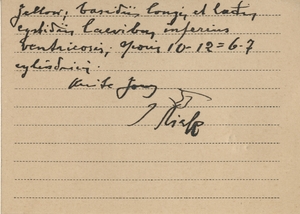 Jellow; basidiis longis et latis
cystidiis laevibus inferius
ventricosis, sporis 10-12=6-7
cylindricis.